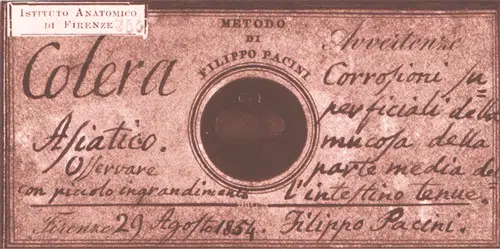 ISTITUTO ANATOMICO
DI FIRENZE
METODO
DI
FILIPPO PACINI
Colera
Asiatico.
Osservare
con piccolo ingrandimento
Firenze 29 Agosto 1854.
Avvertenze
Corrosioni su=
perficiali della
mucosa della
parte media del
l'intestino tenue.
Filippo Pacini.